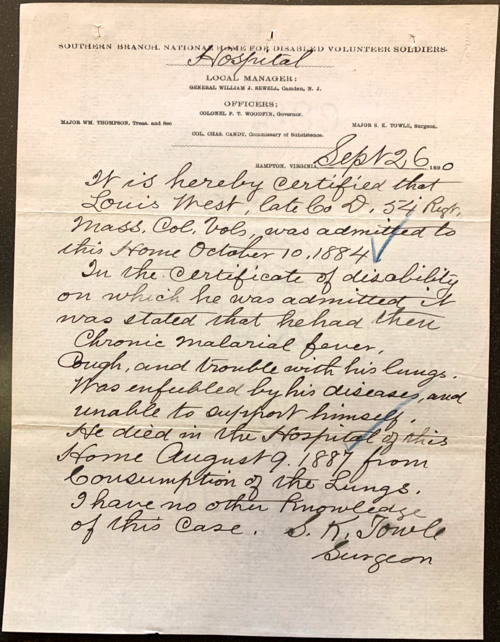 SOUTHERN BRANCH, NATIONAL HOME FOR DISABLED VOLUNTEER SOLDIERS.
Hospital
LOCAL MANAGER:
GENERAL WILLIAM J. SEWELL, Camden, N. J.
OFFICERS:
COLONEL P. T. WOODFIN, Governor.
MAJOR WM. THOMPSON, Treas. and Sec MAJOR S. K. TOWLE, Surgeon.
COL. CHAS. CANDY, Commissary of Subsistence.
HAMPTON, VIRGINIA, Sept 26 1890
It is hereby certified that
Louis West, late Co D, 54 Regt,
Mass. Col. Vols, was admitted to
this Home October 10, 1884
In the certificate of disability
on which he was admitted it
was stated that he had then
Chronic Malarial fever,
Cough, and trouble with his lungs.
Was enfubled by his diseases, and
unable to support himself.
He died in the Hospital of this
Home August 9. 1887 from
Consumption of the Lungs.
I have no other knowledge
of this case. S. K. Towle
Surgeon